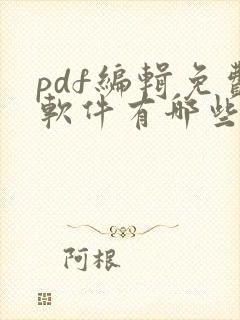 pdf編輯免費
軟件有哪些
阿根